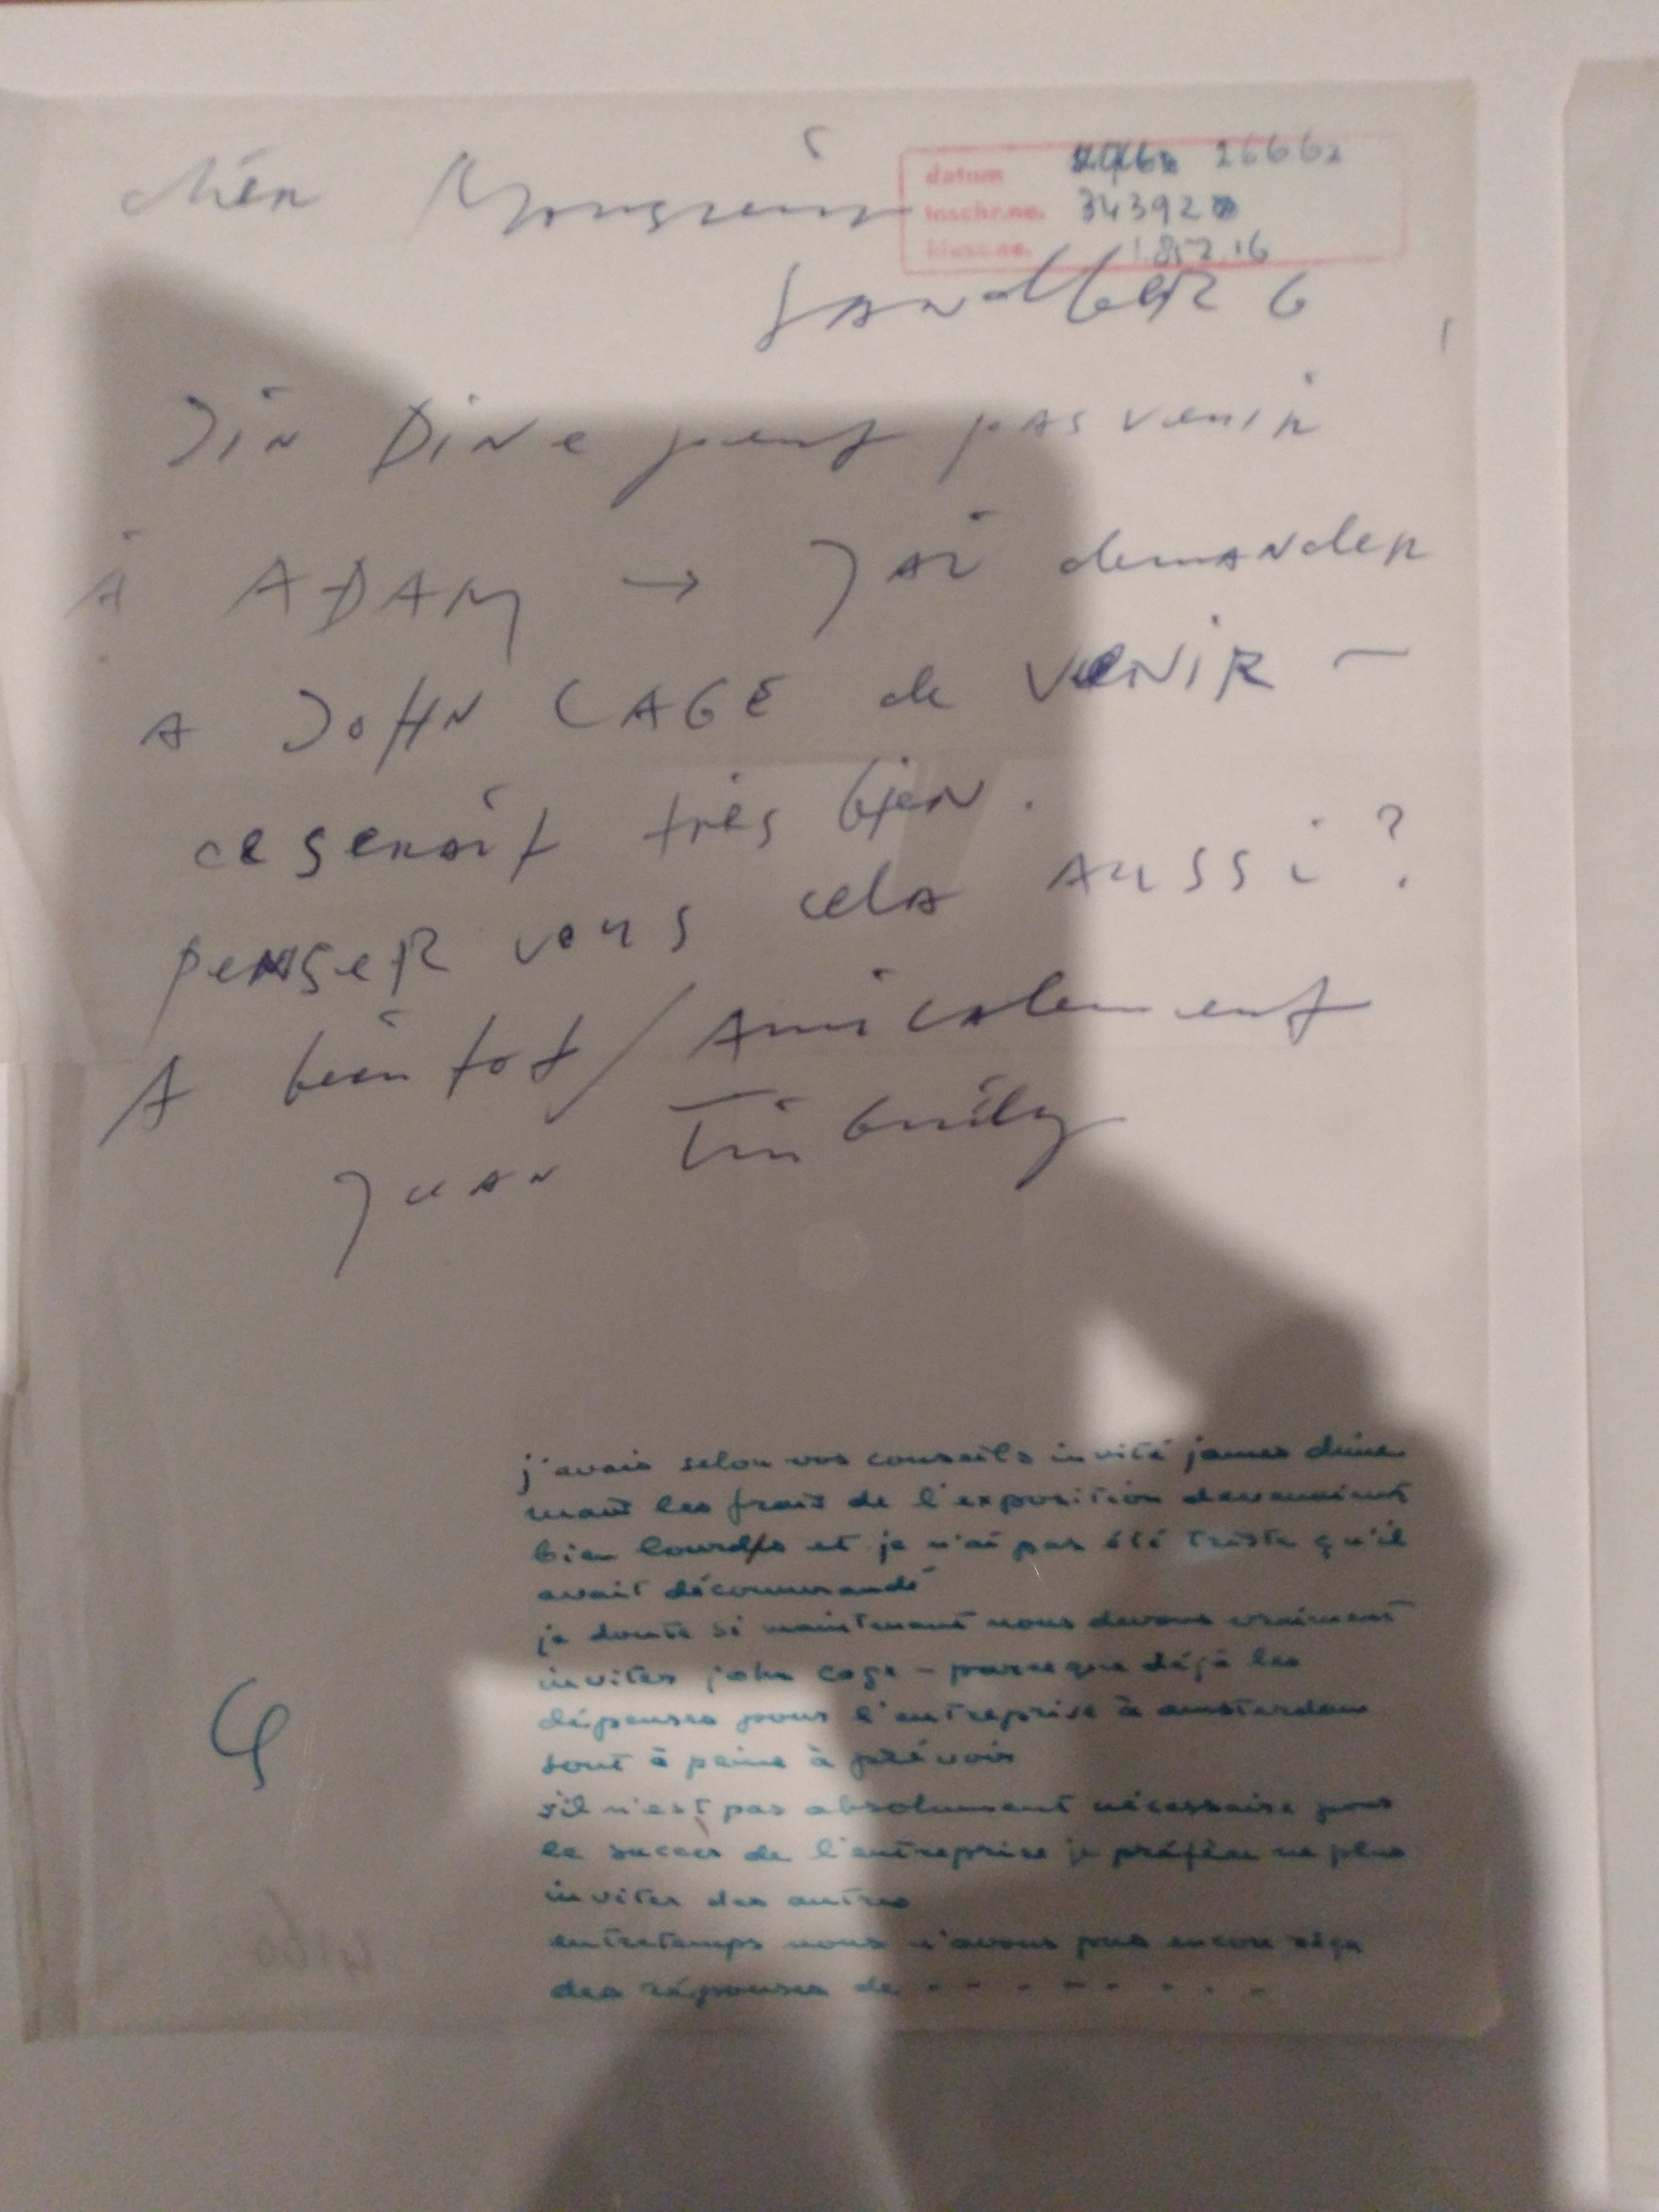 cher Monsieur
datum 26662
Inschr.no. 34392
klass.no. 1.857.16
SANdbeRG
Jim Dine peut pas venir
à ADAM → J'ai demander
A JOHN CAGE de VENIR —
ce serait très bien.
penser vous cela AUSSi ?
A bientot / Amicalement
Jean Tinguely
j'avais selon vos conseils invité james dine
mais les frais de l'exposition devenaient
bien lourds et je n'ai pas été triste qu'il
avait décommandé
je doute si maintenant nous devons vraiment
inviter john cage – parceque déjà les
dépenses pour l'entreprise à amsterdam
sont à peine à prévoir
s'il n'est pas absolument nécessaire pour
le succès de l'entreprise je préfère ne plus
inviter des autres
entretemps nous n'avons pas encore reçu
des réponses de - - - - - - - -